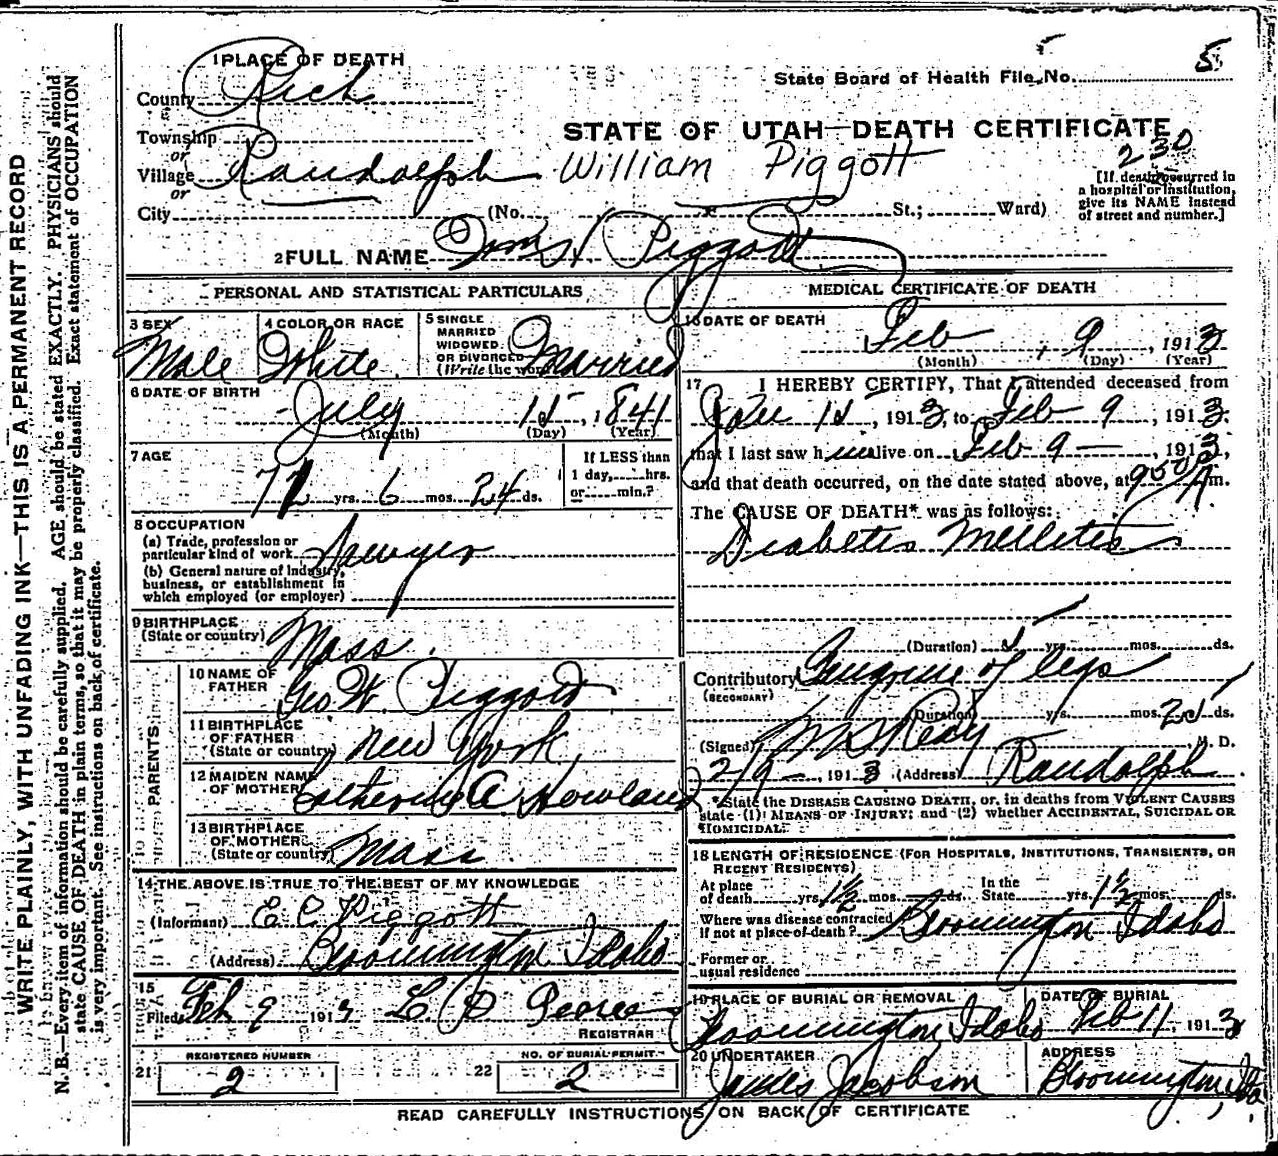 WRITE PLAINLY, WITH UNFADING INK—THIS IS A PERMANENT RECORD
N. B.—Every item of information should be carefully supplied. AGE should be stated EXACTLY. PHYSICIANS should
state CAUSE OF DEATH in plain terms, so that it may be properly classified. Exact statement of OCCUPATION
is very important. See instructions on back of certificate.
1 PLACE OF DEATH
State Board of Health File No. 5
County Rich
STATE OF UTAH—DEATH CERTIFICATE
Township
or
Village Randolph
William Piggott
230
or
[If death occurred in
a hospital or institution,
give its NAME instead
of street and number.]
City (No. St.; Ward)
2 FULL NAME Wm Piggott
PERSONAL AND STATISTICAL PARTICULARS
3 SEX Male
4 COLOR OR RACE White
5 SINGLE
MARRIED
WIDOWED
OR DIVORCED
(Write the word) Married
6 DATE OF BIRTH
July 15, 1841
(Month) (Day) (Year)
7 AGE
72 yrs. 6 mos. 24 ds.
If LESS than
1 day, hrs.
or min.?
8 OCCUPATION
(a) Trade, profession or
particular kind of work Sawyer
(b) General nature of Industry,
business, or establishment in
which employed (or employer)
9 BIRTHPLACE
(State or country) Mass.
PARENTS
10 NAME OF
FATHER Geo W. Piggott
11 BIRTHPLACE
OF FATHER
(State or country) New York
12 MAIDEN NAME
OF MOTHER Catherine A Howland
13 BIRTHPLACE
OF MOTHER
(State or country) Mass
14 THE ABOVE IS TRUE TO THE BEST OF MY KNOWLEDGE
(Informant) E C Piggott
(Address) Bloomington Idaho
15
Filed Feb 9 1913
REGISTRAR
21 REGISTERED NUMBER
2
22 NO. OF BURIAL PERMIT
2
MEDICAL CERTIFICATE OF DEATH
16 DATE OF DEATH
Feb, 9, 1913
(Month) (Day) (Year)
17 I HEREBY CERTIFY, That I attended deceased from
Jan 15, 1913, to Feb 9, 1913,
that I last saw him alive on Feb 9—, 1913,
and that death occurred, on the date stated above, at 900 A m.
The CAUSE OF DEATH* was as follows:
Diabetes Mellites
(Duration) yrs. mos. ds.
Contributory Gangrine of legs
(SECONDARY)
(Duration) yrs. mos. 25 ds.
(Signed) M. D.
2/9—, 1913 (Address) Randolph
*State the DISEASE CAUSING DEATH, or, in deaths from VIOLENT CAUSES
state (1) MEANS OF INJURY; and (2) whether ACCIDENTAL, SUICIDAL OR
HOMICIDAL.
18 LENGTH OF RESIDENCE (FOR HOSPITALS, INSTITUTIONS, TRANSIENTS, OR
RECENT RESIDENTS)
At place
of death yrs. 1½ mos. ds.
In the
State yrs. 1½ mos. ds.
Where was disease contracted
if not at place of death? Bloomington Idaho
Former or
usual residence
19 PLACE OF BURIAL OR REMOVAL
Bloomington, Idaho
DATE OF BURIAL
Feb 11, 1913
20 UNDERTAKER
James Jacobson
ADDRESS
Bloomington, Ida
READ CAREFULLY INSTRUCTIONS ON BACK OF CERTIFICATE